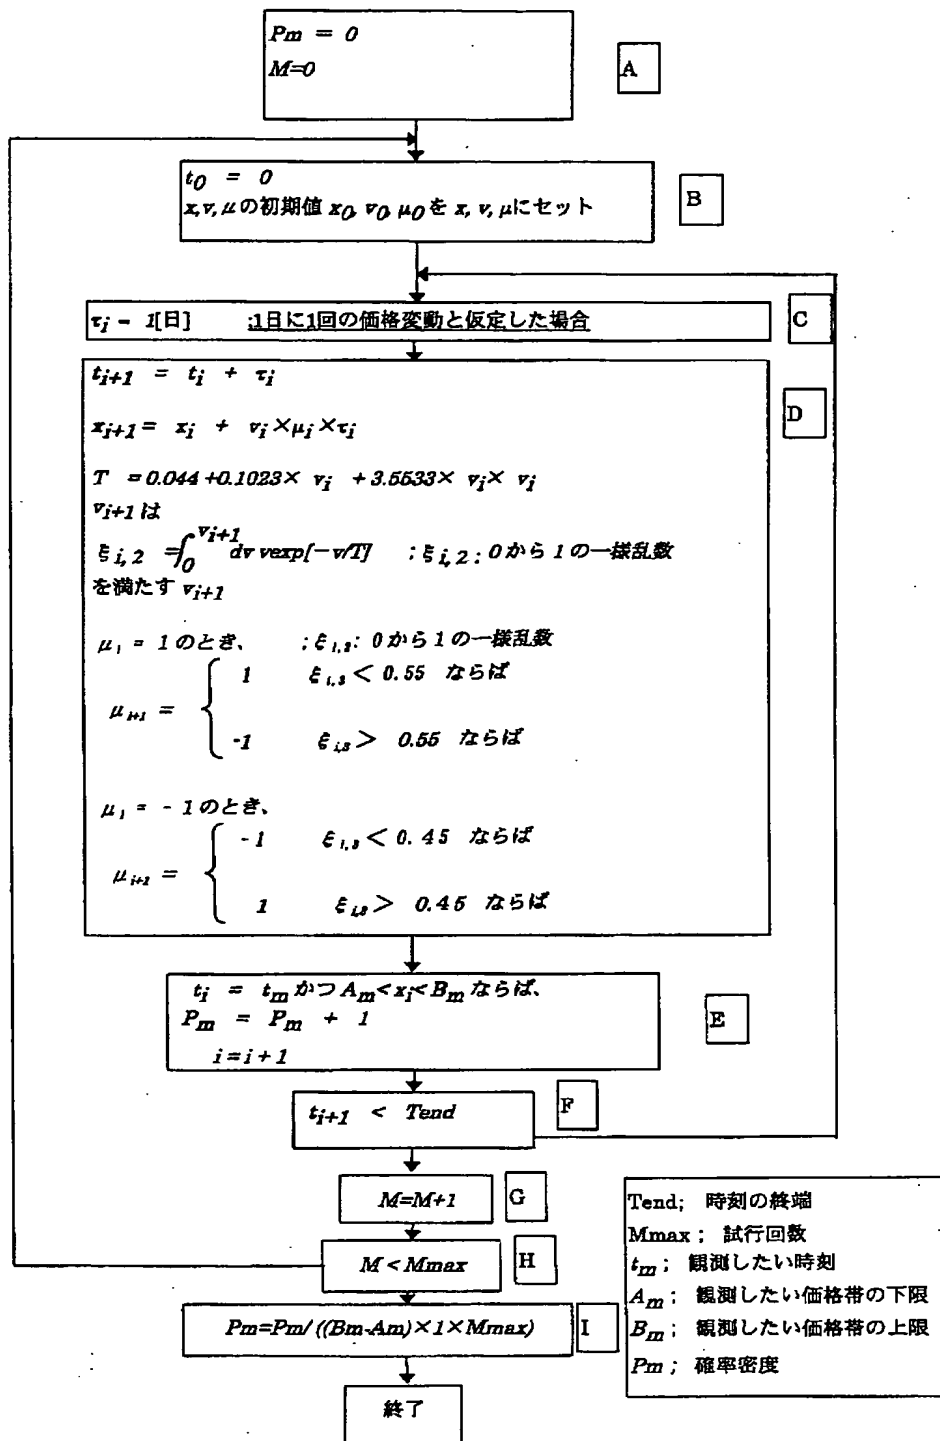 Pm = 0
M=0
A
t0 = 0
x,v,μの初期値 x0, v0, μ0 を x, v, μにセット
B
τi = 1[日] ;1日に1回の価格変動と仮定した場合
C
ti+1 = ti + τi
D
xi+1 = xi + vi×μi×τi
T = 0.044+0.1023× vi + 3.5533× vi× vi
vi+1 は
ξi,2 =∫0^vi+1 dv vexp[-v/T] ;ξi,2 ; 0から1の一様乱数
を満たす vi+1
μi = 1のとき、 ;ξi,3: 0から1の一様乱数
1 ξi,3 < 0.55 ならば
μi+1 = {
-1 ξi,3 > 0.55 ならば
μi = - 1のとき、
-1 ξi,3 < 0.45 ならば
μi+1 = {
1 ξi,3 > 0.45 ならば
ti = tm かつ Am<xi<Bm ならば、
Pm = Pm + 1
i=i+1
E
ti+1 < Tend
F
M=M+1
G
M<Mmax
H
Pm=Pm/((Bm-Am)×1×Mmax)
I
終了
Tend; 時刻の終端
Mmax; 試行回数
tm; 観測したい時刻
Am; 観測したい価格帯の下限
Bm; 観測したい価格帯の上限
Pm; 確率密度